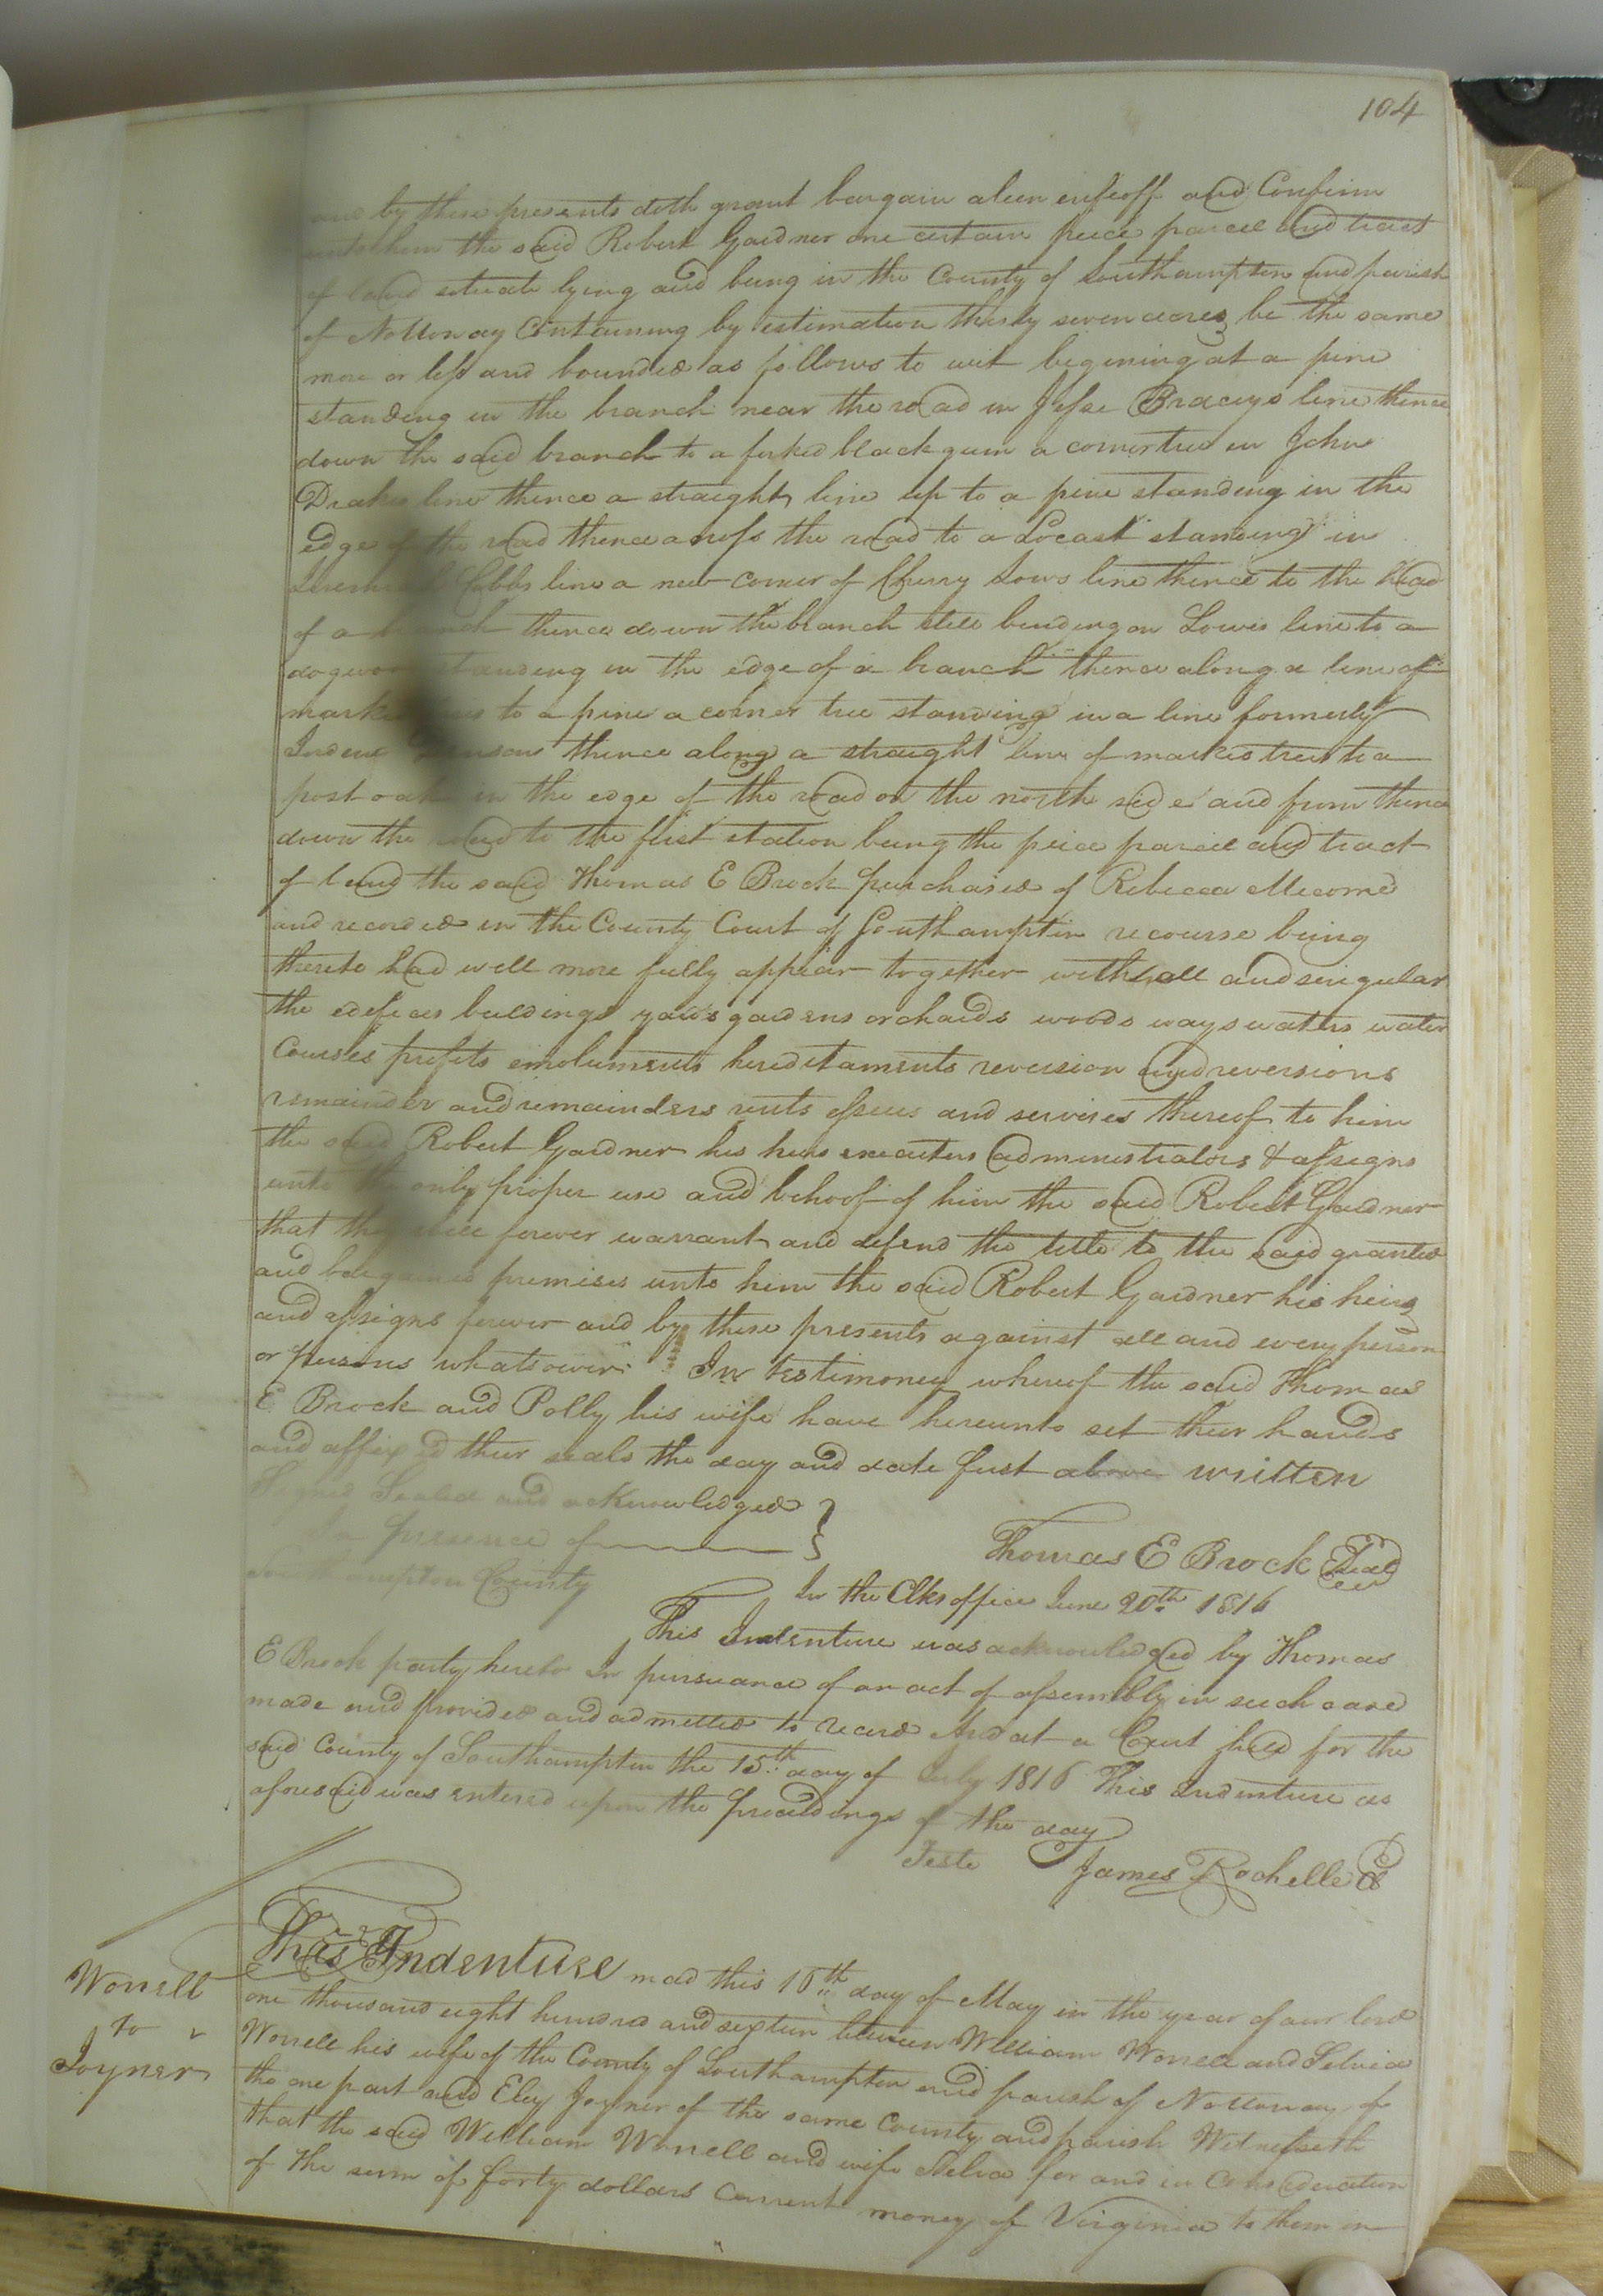 104
and by these presents doth grant bargain alien enfeoff and Confirm
unto him the said Robert Gardner one certain peice parcel and tract
of land situate lying and being in the County of Southampton and parish
of Nottoway Containing by estimation thirty seven acres be the same
more or less and bounded as follows to wit begining at a pine
standing in the branch near the road in Jesse Braceys line thence
down the said branch to a forked black gum a corner tree in John
Drakes line thence a straight line up to a pine standing in the
edge of the road thence across the road to a Locast standing in
Cobbs line a new corner of Cherry Lows line thence to the head
of a branch thence down the branch still binding on Lows line to a
dogwood standing in the edge of a branch thence along a line of
marked trees to a pine a corner tree standing in a line formerly
thence along a straight line of marked trees to a
post oak in the edge of the road on the north side and from thence
down the road to the first station being the peice parcel and tract
of land the said Thomas E Brock purchased of Rebecca Mecome
and recorded in the County Court of Southampton recourse being
thereto had will more fully appear together with all and singular
the edefices buildings yards gardens orchards woods ways waters water
Courses profits emoluments hereditaments reversion and reversions
remainder and remainders rents issues and services thereof to him
the said Robert Gardner his heirs executors administrators & assigns
unto the only proper use and behoof of him the said Robert Gardner
that they will forever warrant and defend the title to the said granted
and bargained premises unto him the said Robert Gardner his heirs
and assigns forever and by these presents against all and every person
or persons whatsoever In testimoney whereof the said Thomas
E Brock and Polly his wife have hereunto set their hands
and affixed their seals the day and date first above written
Signed Sealed and acknowledged
In presence of
Thomas E Brock Seal
Southampton County
In the Clks office June 20th 1816
This Indenture was acknowledged by Thomas
E Brock party hereto In pursuance of an act of assembly in such cased
made and provided and admitted to record And at a Court held for the
said County of Southampton the 15th day of July 1816 This Indenture as
aforesaid was entered upon the proceedings of the day
Teste James Rochelle C
Worrell
to
Joyner
This Indenture mad this 16th day of May in the year of our lord
one thousand eight hundred and sixteen between William Worrell and Selvia
Worrell his wife of the County of Southampton and parish of Nottoway of
the one part and Eley Joyner of the same County and parish Witnesseth
that the said William Worrell and wife Selva for and in Consideration
of the sum of forty dollars Current money of Virginia to them in